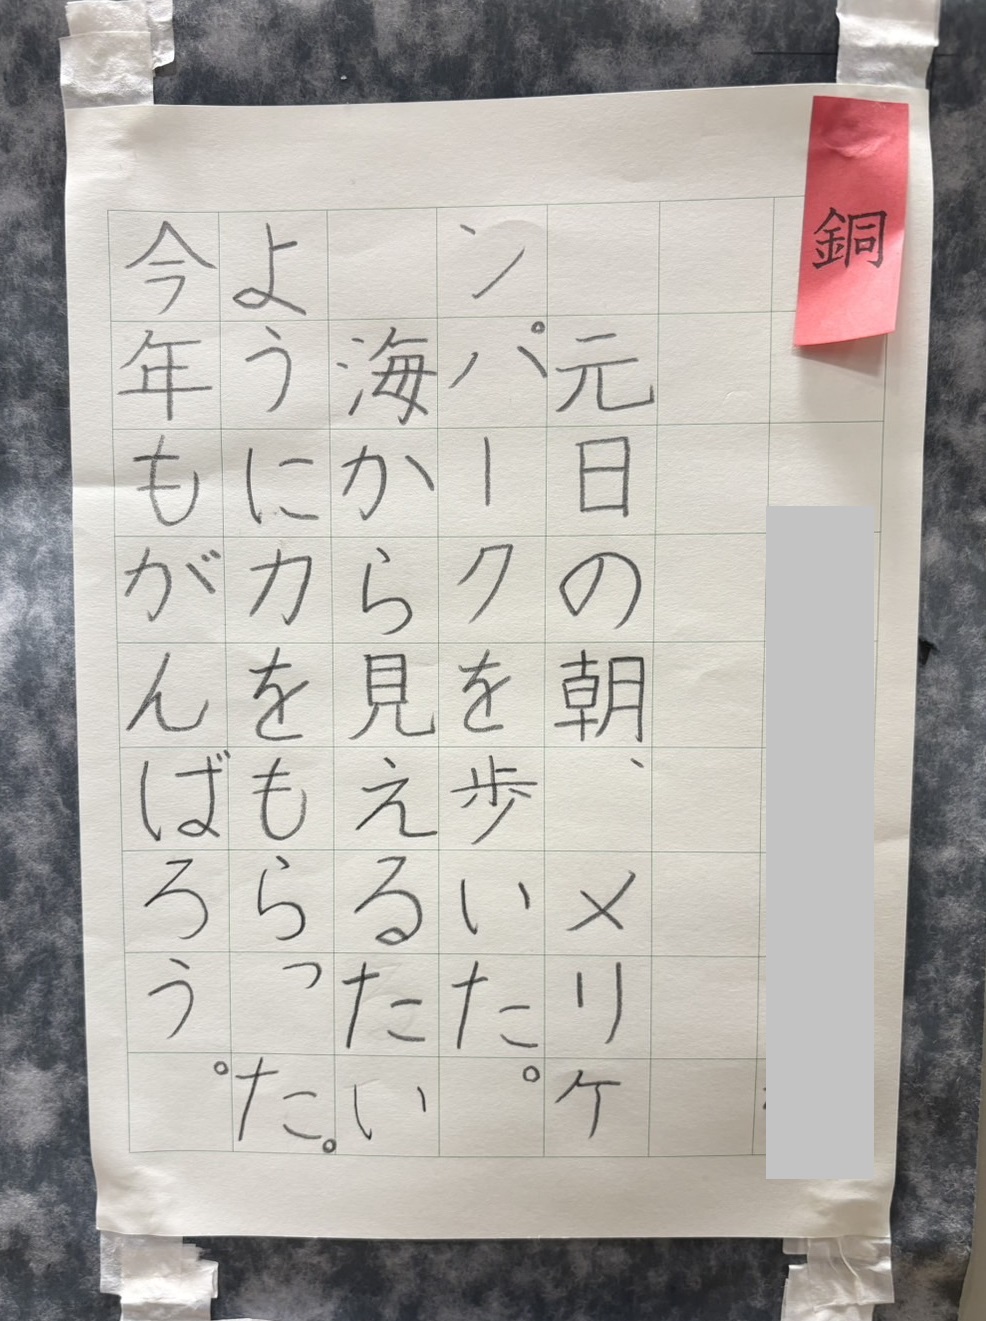 銅
元日の朝、メリケ
ンパークを歩いた。
海から見えるたい
ように力をもらった。
今年もがんばろう。